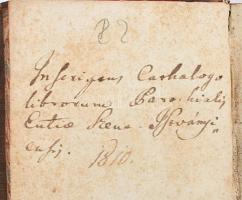 82
Inscriptus Cathalogo
librorum Parochialis
Szent Istvánÿi
ensis.
1810.